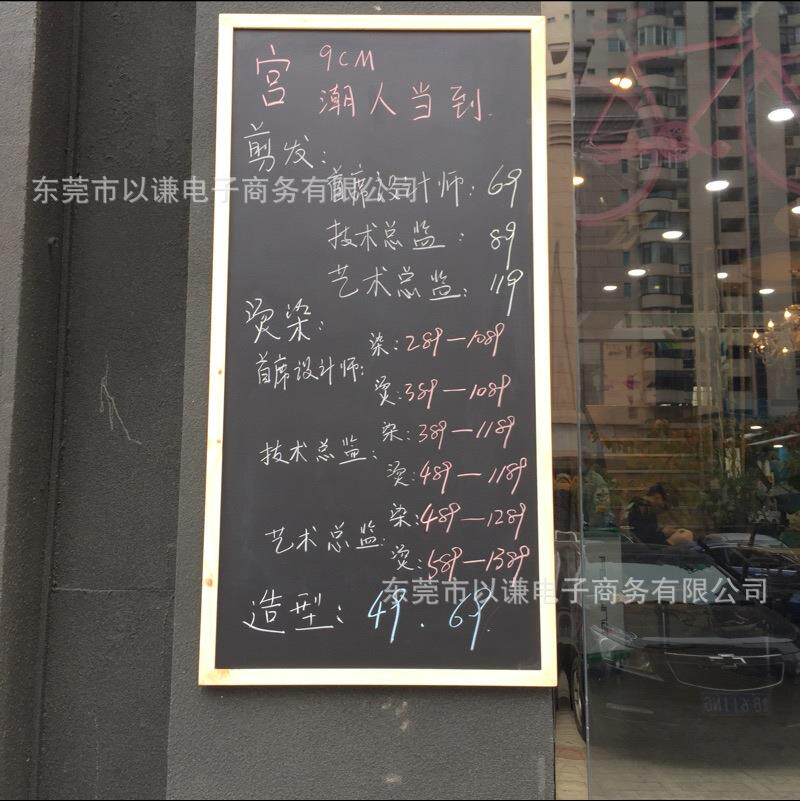 宫 9CM
潮人当到.
剪发:
首席设计师: 69
技术总监: 89
艺术总监: 119
烫染:
首席设计师: 染: 289—1089
烫: 389—1089
技术总监: 染: 389—1189
烫: 489—1189
艺术总监: 染: 489—1289
烫: 589—1389
造型: 49. 69.
东莞市以谦电子商务有限公司
东莞市以谦电子商务有限公司